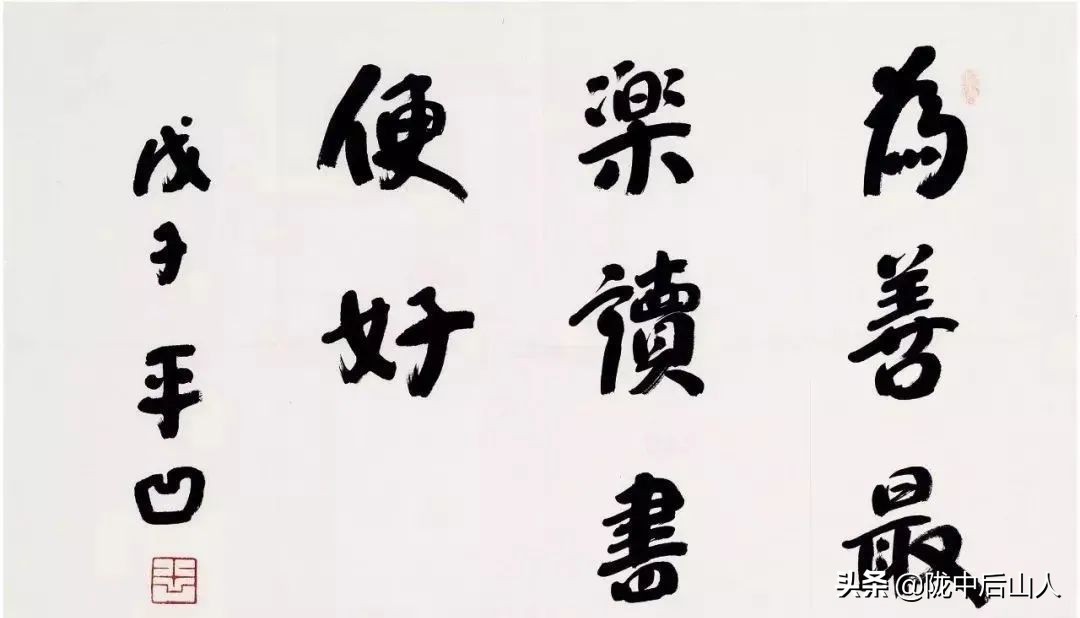 為善最
楽讀書
便好
戊子平凹
头条 @陇中后山人